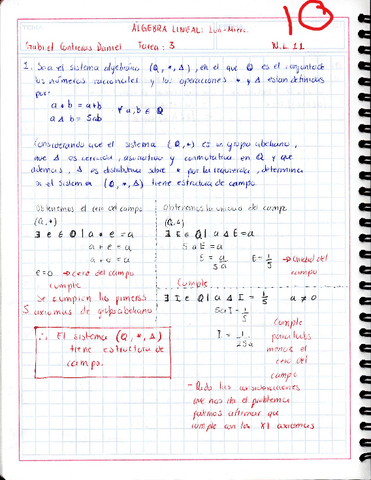 10
ÁLGEBRA LINEAL: Lun-Mierc.
Gabriel Contreras Daniel Tarea: 3 N.L 11
1. Sea el sistema algebraico (Q, *, Δ), en el que Q es el conjunto de
los números racionales y las operaciones * y Δ están definidas
por:
a * b = a+b ∀ a,b ∈ Q
a Δ b = 5ab
Considerando que el sistema (Q, *) es un grupo abeliano,
que Δ es cerrada, asociativa y conmutativa en Q y que
además, Δ es distributiva sobre * por la izquierda, determina
si el sistema (Q, *, Δ) tiene estructura de campo.
Obtenemos el cero del campo
(Q, *)
∃ e ∈ Q | a * e = a
a + e = a
a + 0 = a
e=0 → cero del campo
cumple
Se cumplen los primeros
5 axiomas de grupo abeliano
∴ El sistema (Q, *, Δ)
tiene estructura de
campo.
Obtenemos la unidad del campo
(Q, Δ)
∃ E ∈ Q | a Δ E = a
5 a E = a
E = a/5a E = 1/5 → Unidad del
campo
Cumple
∃ I ∈ Q | a Δ I = 1/5 a ≠ 0
5aI = 1/5
I = 1/25a
Cumple
para todos
menos el
cero del
campo
- Dadas las consideraciones
que nos da el problema
podemos afirmar que
cumple con los XI axiomas